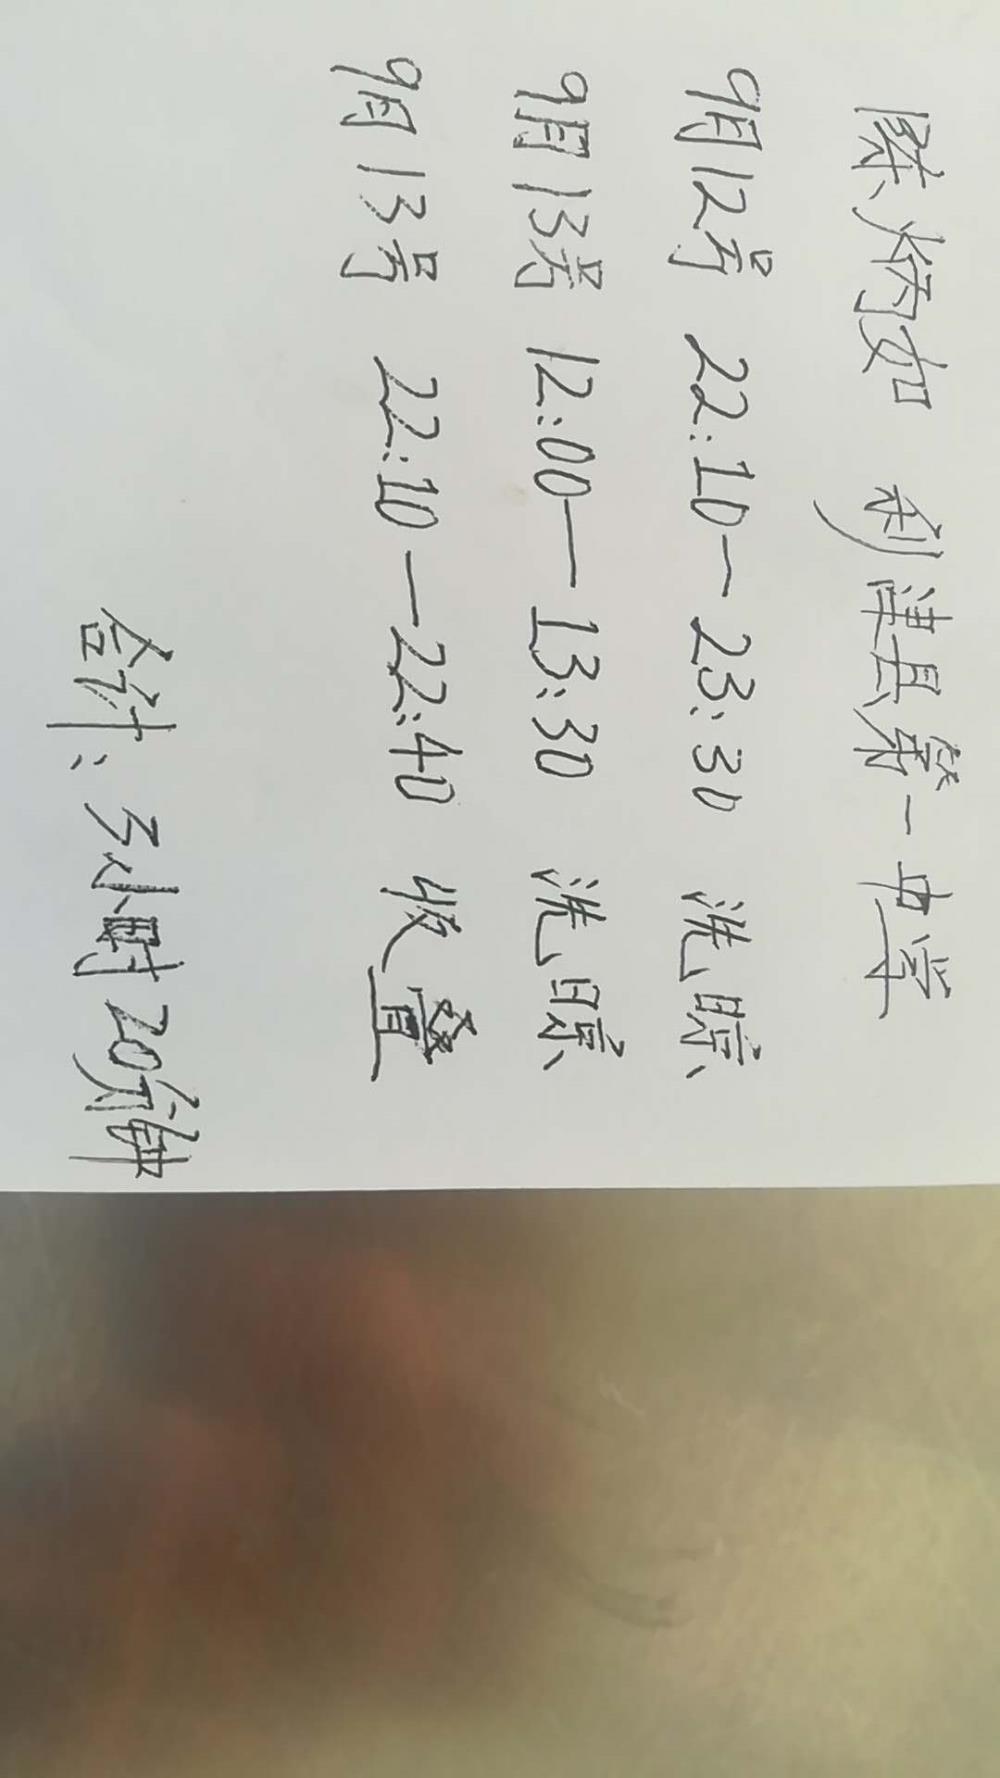 陈炳如 利津县第一中学
9月12号 22:10—23:30 洗晾
9月13号 12:00—13:30 洗晾
9月13号 22:10—22:40 收叠
合计：3小时20分钟